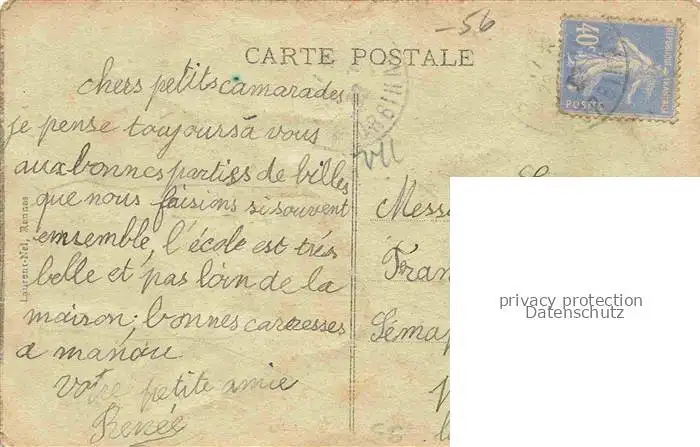 -56
CARTE POSTALE
40c
REPUBLIQUE FRANCAISE
POSTES
MORBIHAN
chers petits camarades
je pense toujours à vous
aux bonnes parties de billes
que nous faisions si souvent
ensemble, l'école est très
belle et pas loin de la
maison; bonnes caresses
a manou
Votre petite amie
Renée
VII
Mess
Fran
Sémap
Laurent-Nel, Rennes
privacy protection
Datenschutz